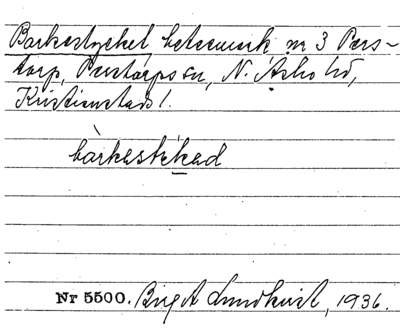 Barkastycket, betesmark nr 3 Pers-
torp, Perstorps sn, N. Åsbo hd,
Kristianstads l.
bàrkastékad
Nr 5500. Birgit Lundkvist, 1936.